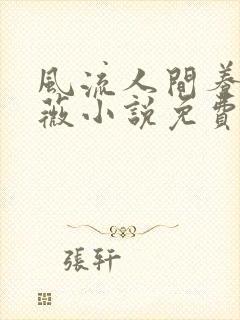 風流人間養
薇小說免費
張軒